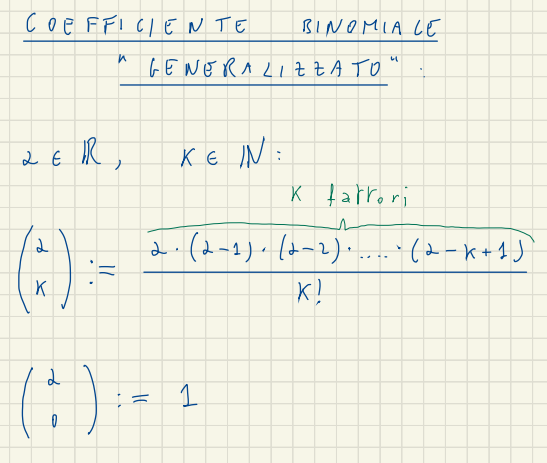 COEFFICIENTE BINOMIALE
"GENERALIZZATO":
α ∈ ℝ, K ∈ ℕ:
K fattori
(α K) := α · (α-1) · (α-2) · .... · (α-K+1) / K!
(α 0) := 1